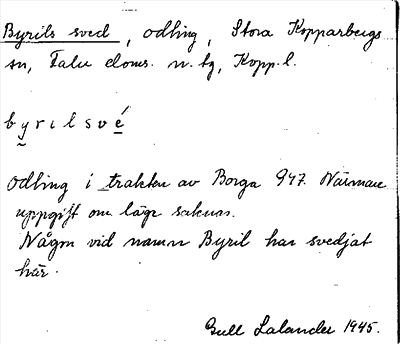 Byrils sved, odling, Stora Kopparbergs
sn, Falu doms. n. tg, Kopp. l.
byrilsvé
Odling i trakten av Borga 947. Närmare
uppgift om läge saknas.
Någon vid namn Byril har svedjat
här.
Gull Lalander 1945.